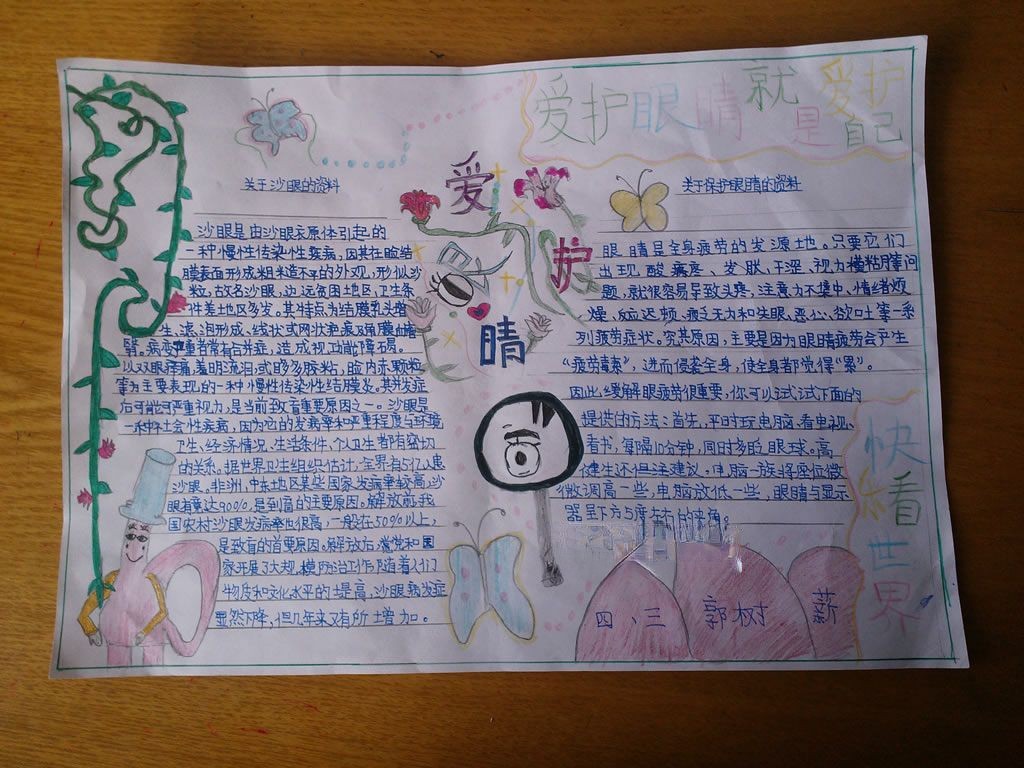 爱护眼睛就是爱护自己
爱护眼睛
关于沙眼的资料
沙眼是由沙眼衣原体引起的
一种慢性传染性疾病，因其在睑结
膜表面形成粗糙不平的外观，形似沙
粒，故名沙眼，边远贫困地区，卫生条
件差地区多发。其特点为结膜乳头增
生、滤泡形成、线状或网状疤痕及角膜血管
翳。病变严重者常有合并症，造成视功能障碍。
以双眼疼痛，羞明流泪，或眵多胶粘，睑内赤颗粒
害为主要表现的一种慢性传染性结膜炎。其并发症
后可能可严重视力，是当前致盲重要原因之一。沙眼是
一种社会性疾病，因为它的发病率和严重程度与环境
卫生、经济情况、生活条件、个人卫生都有密切
的关系。据世界卫生组织估计，全界有5亿人患
沙眼。非洲、中东地区某些国家发病率较高，沙
眼有率达90%，是到盲的主要原因。解放前，我
国农村沙眼发病率也很高，一般在50%以上，
是致盲的首要原因。解放后，党和国
家开展了大规模防治工作，随着人们
物质和文化水平的提高，沙眼并发症
显然下降，但几年来又有所增加。
关于保护眼睛的资料
眼睛是全身疲劳的发源地。只要它们
出现酸痛、发胀、干涩、视力模粘膜等问
题，就很容易导致头疼，注意力不集中、情绪烦
燥、反应迟顿、疲乏无力和失眠、恶心、欲口土等一系
列疲劳症状。究其原因，主要是因为眼睛疲劳会产生
“疲劳毒素”，进而侵袭全身，使全身都觉得“累”。
因此，缓解眼疲劳很重要，你可以试试下面的
提供的方法：首先，平时玩电脑、看电视、
看书，每隔10分钟，同时多眨眼球。高
健生还但注建议，电脑一族将座位微
微调高一些，电脑放低一些，眼睛与显示
器呈下方5度左右的夹角。
快乐看世界
四、三 郭树薪